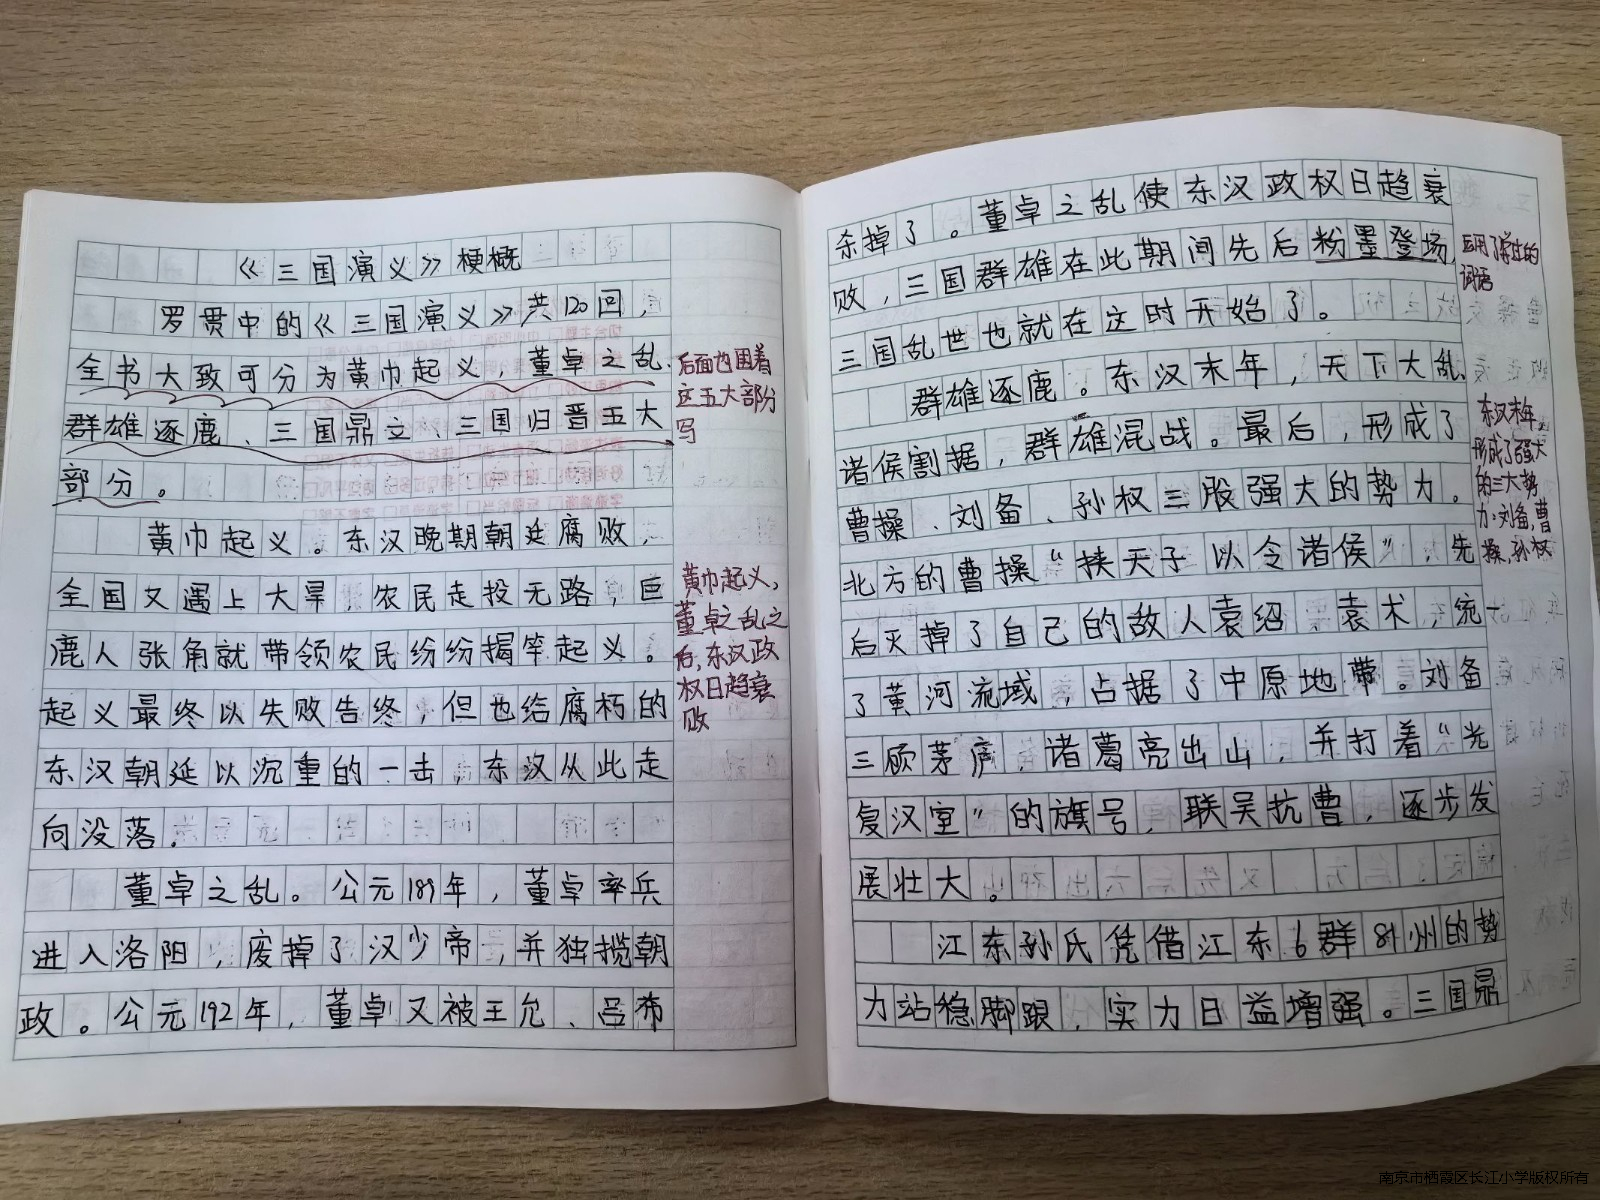 《三国演义》梗概
罗贯中的《三国演义》共120回,
全书大致可分为黄巾起义,董卓之乱、
群雄逐鹿、三国鼎立、三国归晋五大
部分。
后面也围着
这五大部分
写
黄巾起义。东汉晚期朝廷腐败,
全国又遇上大旱,农民走投无路,巨
鹿人张角就带领农民纷纷揭竿起义。
起义最终以失败告终,但也给腐朽的
东汉朝廷以沉重的一击,东汉从此走
向没落.
黄巾起义,
董卓之乱之
后,东汉政
权日趋衰
败
董卓之乱。公元189年,董卓率兵
进入洛阳,废掉了汉少帝,并独揽朝
政。公元192年,董卓又被王允、吕布
杀掉了。董卓之乱使东汉政权日趋衰
败,三国群雄在此期间先后粉墨登场,
三国乱世也就在这时开始了。
应用了学过的
词语
群雄逐鹿。东汉末年,天下大乱,
诸侯割据,群雄混战。最后,形成了
曹操、刘备、孙权三股强大的势力。
北方的曹操“挟天子以令诸侯”,先
后灭掉了自己的敌人袁绍、袁术,统一
了黄河流域,占据了中原地带。刘备
三顾茅庐,诸葛亮出山,并打着“光
复汉室”的旗号,联吴抗曹,逐步发
展壮大。
东汉末年,
形成了强大
的三大势
力:刘备,曹
操,孙权
江东孙氏凭借江东6群81州的势
力站稳脚跟,实力日益增强。三国鼎
南京市栖霞区长江小学版权所有